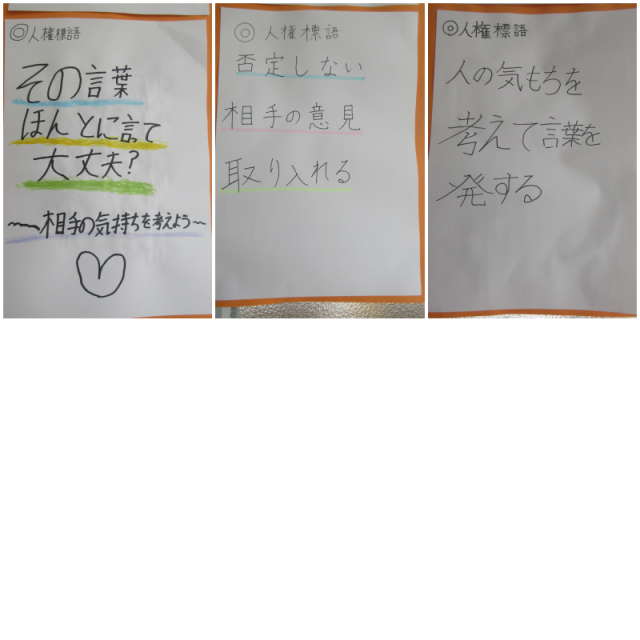 ◎人権標語
その言葉
ほんとに言て
大丈夫?
〜相手の気持ちを考えよう〜
◎人権標語
否定しない
相手の意見
取り入れる
◎人権標語
人の気もちを
考えて言葉を
発する